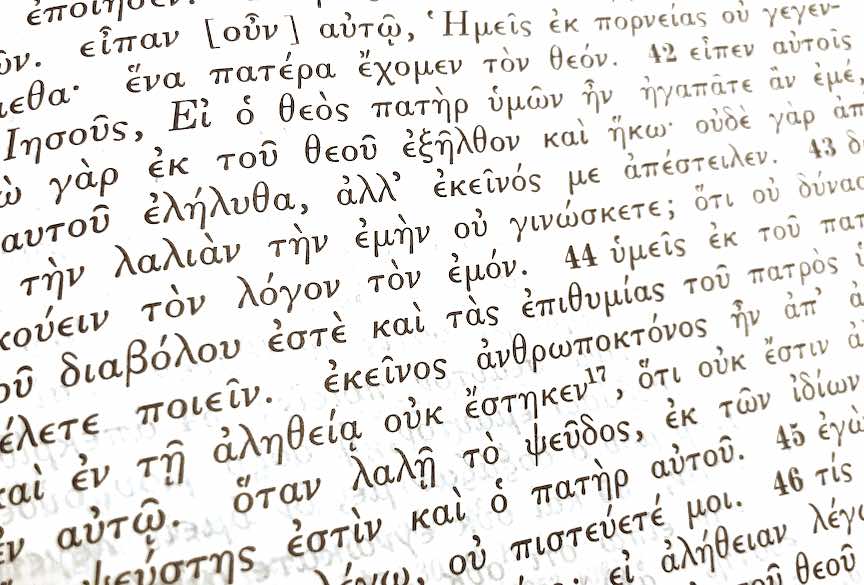 ἐποίησεν.
εἶπαν [οὖν] αὐτῷ, Ἡμεῖς ἐκ πορνείας οὐ γεγεν-
ἕνα πατέρα ἔχομεν τὸν θεόν. 42 εἶπεν αὐτοῖς
Ἰησοῦς, Εἰ ὁ θεὸς πατὴρ ὑμῶν ἦν ἠγαπᾶτε ἂν ἐμέ,
γὰρ ἐκ τοῦ θεοῦ ἐξῆλθον καὶ ἥκω· οὐδὲ γὰρ
ἐλήλυθα, ἀλλ’ ἐκεῖνός με ἀπέστειλεν. 43
τὴν λαλιὰν τὴν ἐμὴν οὐ γινώσκετε; ὅτι οὐ
τὸν λόγον τὸν ἐμόν. 44 ὑμεῖς ἐκ τοῦ
διαβόλου ἐστὲ καὶ τὰς ἐπιθυμίας τοῦ πατρὸς
ποιεῖν. ἐκεῖνος ἀνθρωποκτόνος ἦν ἀπ’
καὶ ἐν τῇ ἀληθείᾳ οὐκ ἔστηκεν17, ὅτι οὐκ ἔστιν
αὐτῷ. ὅταν λαλῇ τὸ ψεῦδος, ἐκ τῶν ἰδίων
ψεύστης ἐστὶν καὶ ὁ πατὴρ αὐτοῦ. 45 ἐγὼ
οὐ πιστεύετέ μοι. 46 τίς
εἰ ἀλήθειαν λέγω
θεοῦ